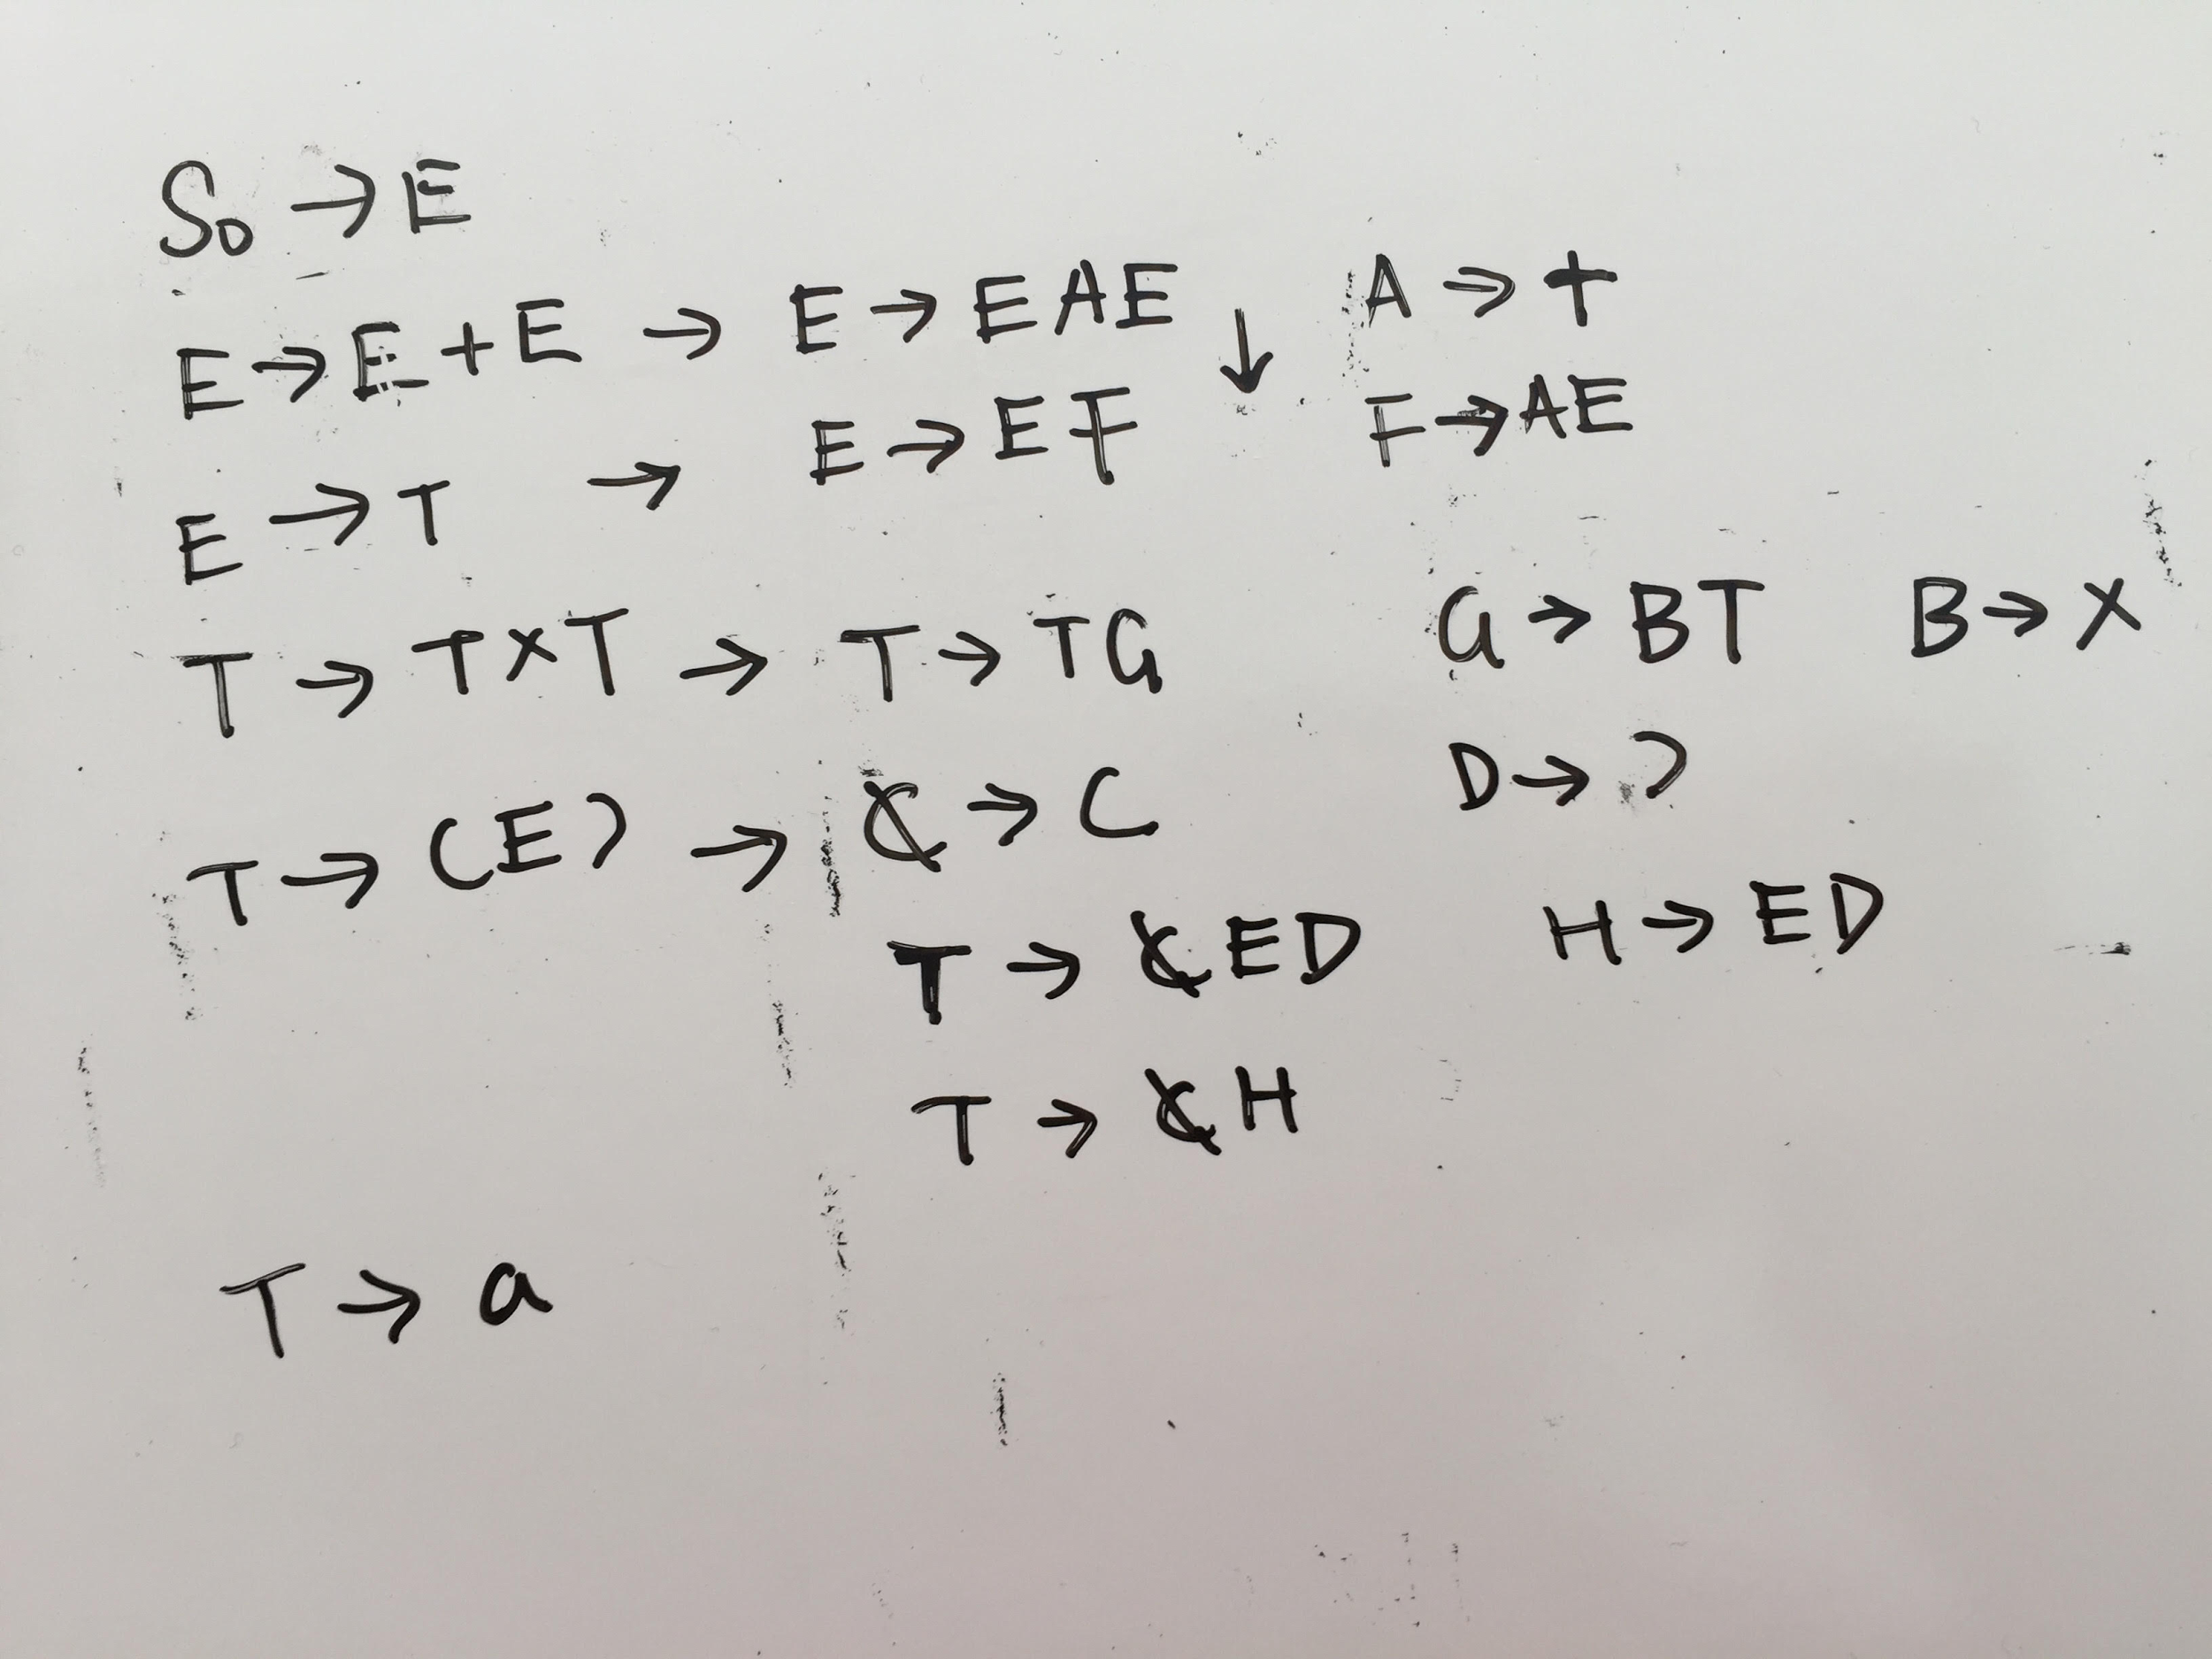 S₀ → E
E → E + E → E → E A E ↓ A → +
E → E F F → A E
E → T →
T → T × T → T → T G G → B T B → ×
T → ( E ) → ₵ → ( D → )
T → ₵ E D H → E D
T → ₵ H
T → a